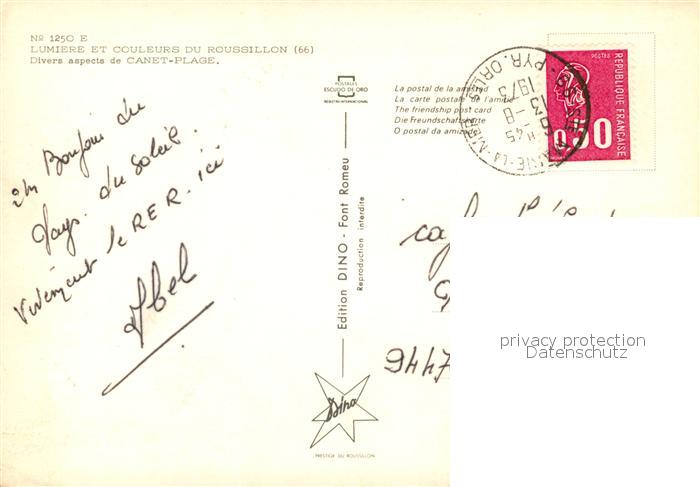 Nº 1250 E
LUMIERE ET COULEURS DU ROUSSILLON (66)
Divers aspects de CANET-PLAGE.
POSTALES
ESCUDO DE ORO
REGISTRO INTERNACIONAL
La postal de la amistad
La carte postale de l'amitié
The friendship post card
Die Freundschaftskarte
O postal da amizade
PYR. ORLES
1973
REPUBLIQUE FRANÇAISE
0,50
un Bonjour du
Pays du Soleil.
Vivement le RER. ici
Abel
Edition DINO - Font Romeu
Reproduction interdite
9447
Dino
PRESTIGE DU ROUSSILLON
privacy protection
Datenschutz